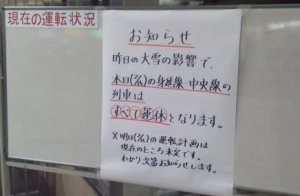 現在の運転状況
お知らせ
昨日の大雪の影響で、
本日(%)の身延線・中央線の
列車は
すべて運休となります。
※明日(%)の運転計画は
現在のところ未定です。
わかり次第お知らせします。